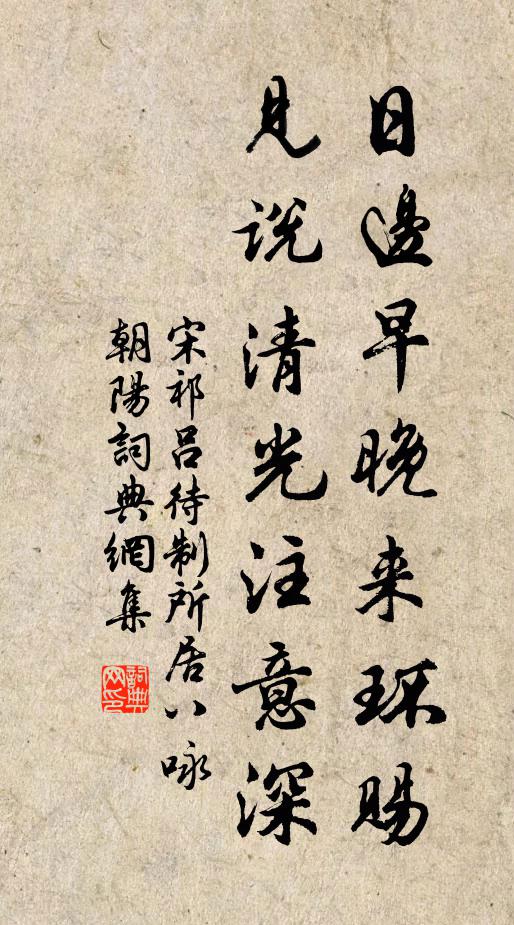 日邊早晚来環賜
見説清光注意深
宋祁吕待制所居八咏
朝陽詞典網集
詞典网印